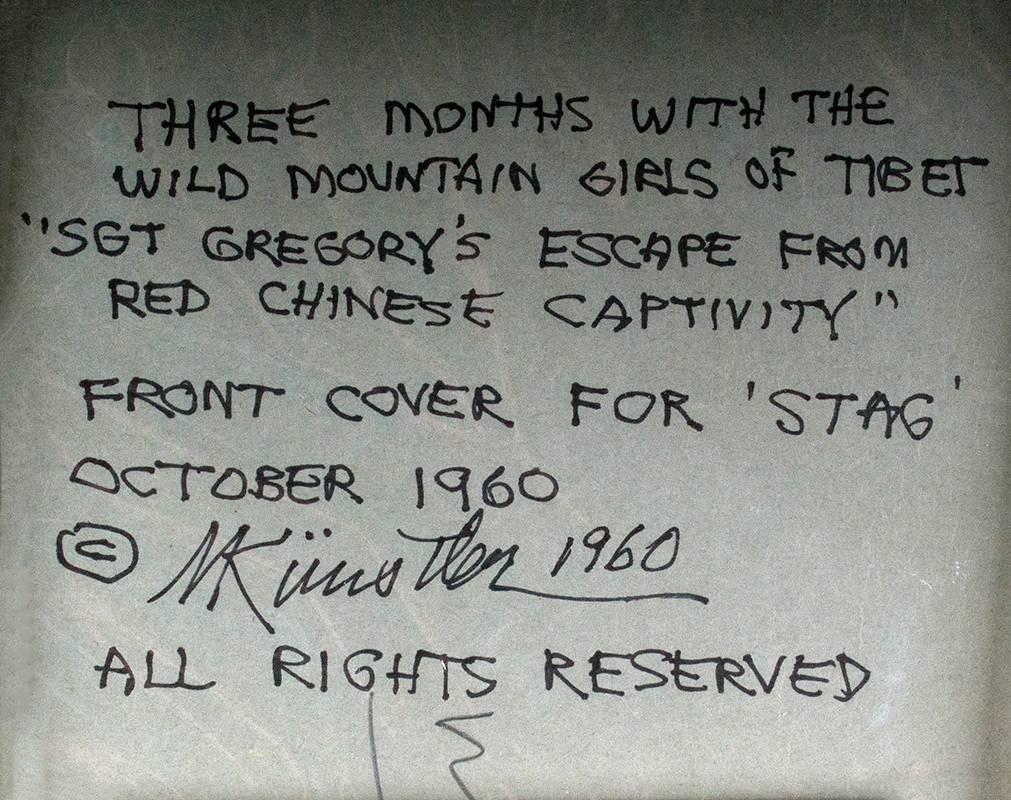 THREE MONTHS WITH THE
WILD MOUNTAIN GIRLS OF TIBET
"SGT GREGORY'S ESCAPE FROM
RED CHINESE CAPTIVITY"
FRONT COVER FOR 'STAG'
OCTOBER 1960
© MKünstler 1960
ALL RIGHTS RESERVED